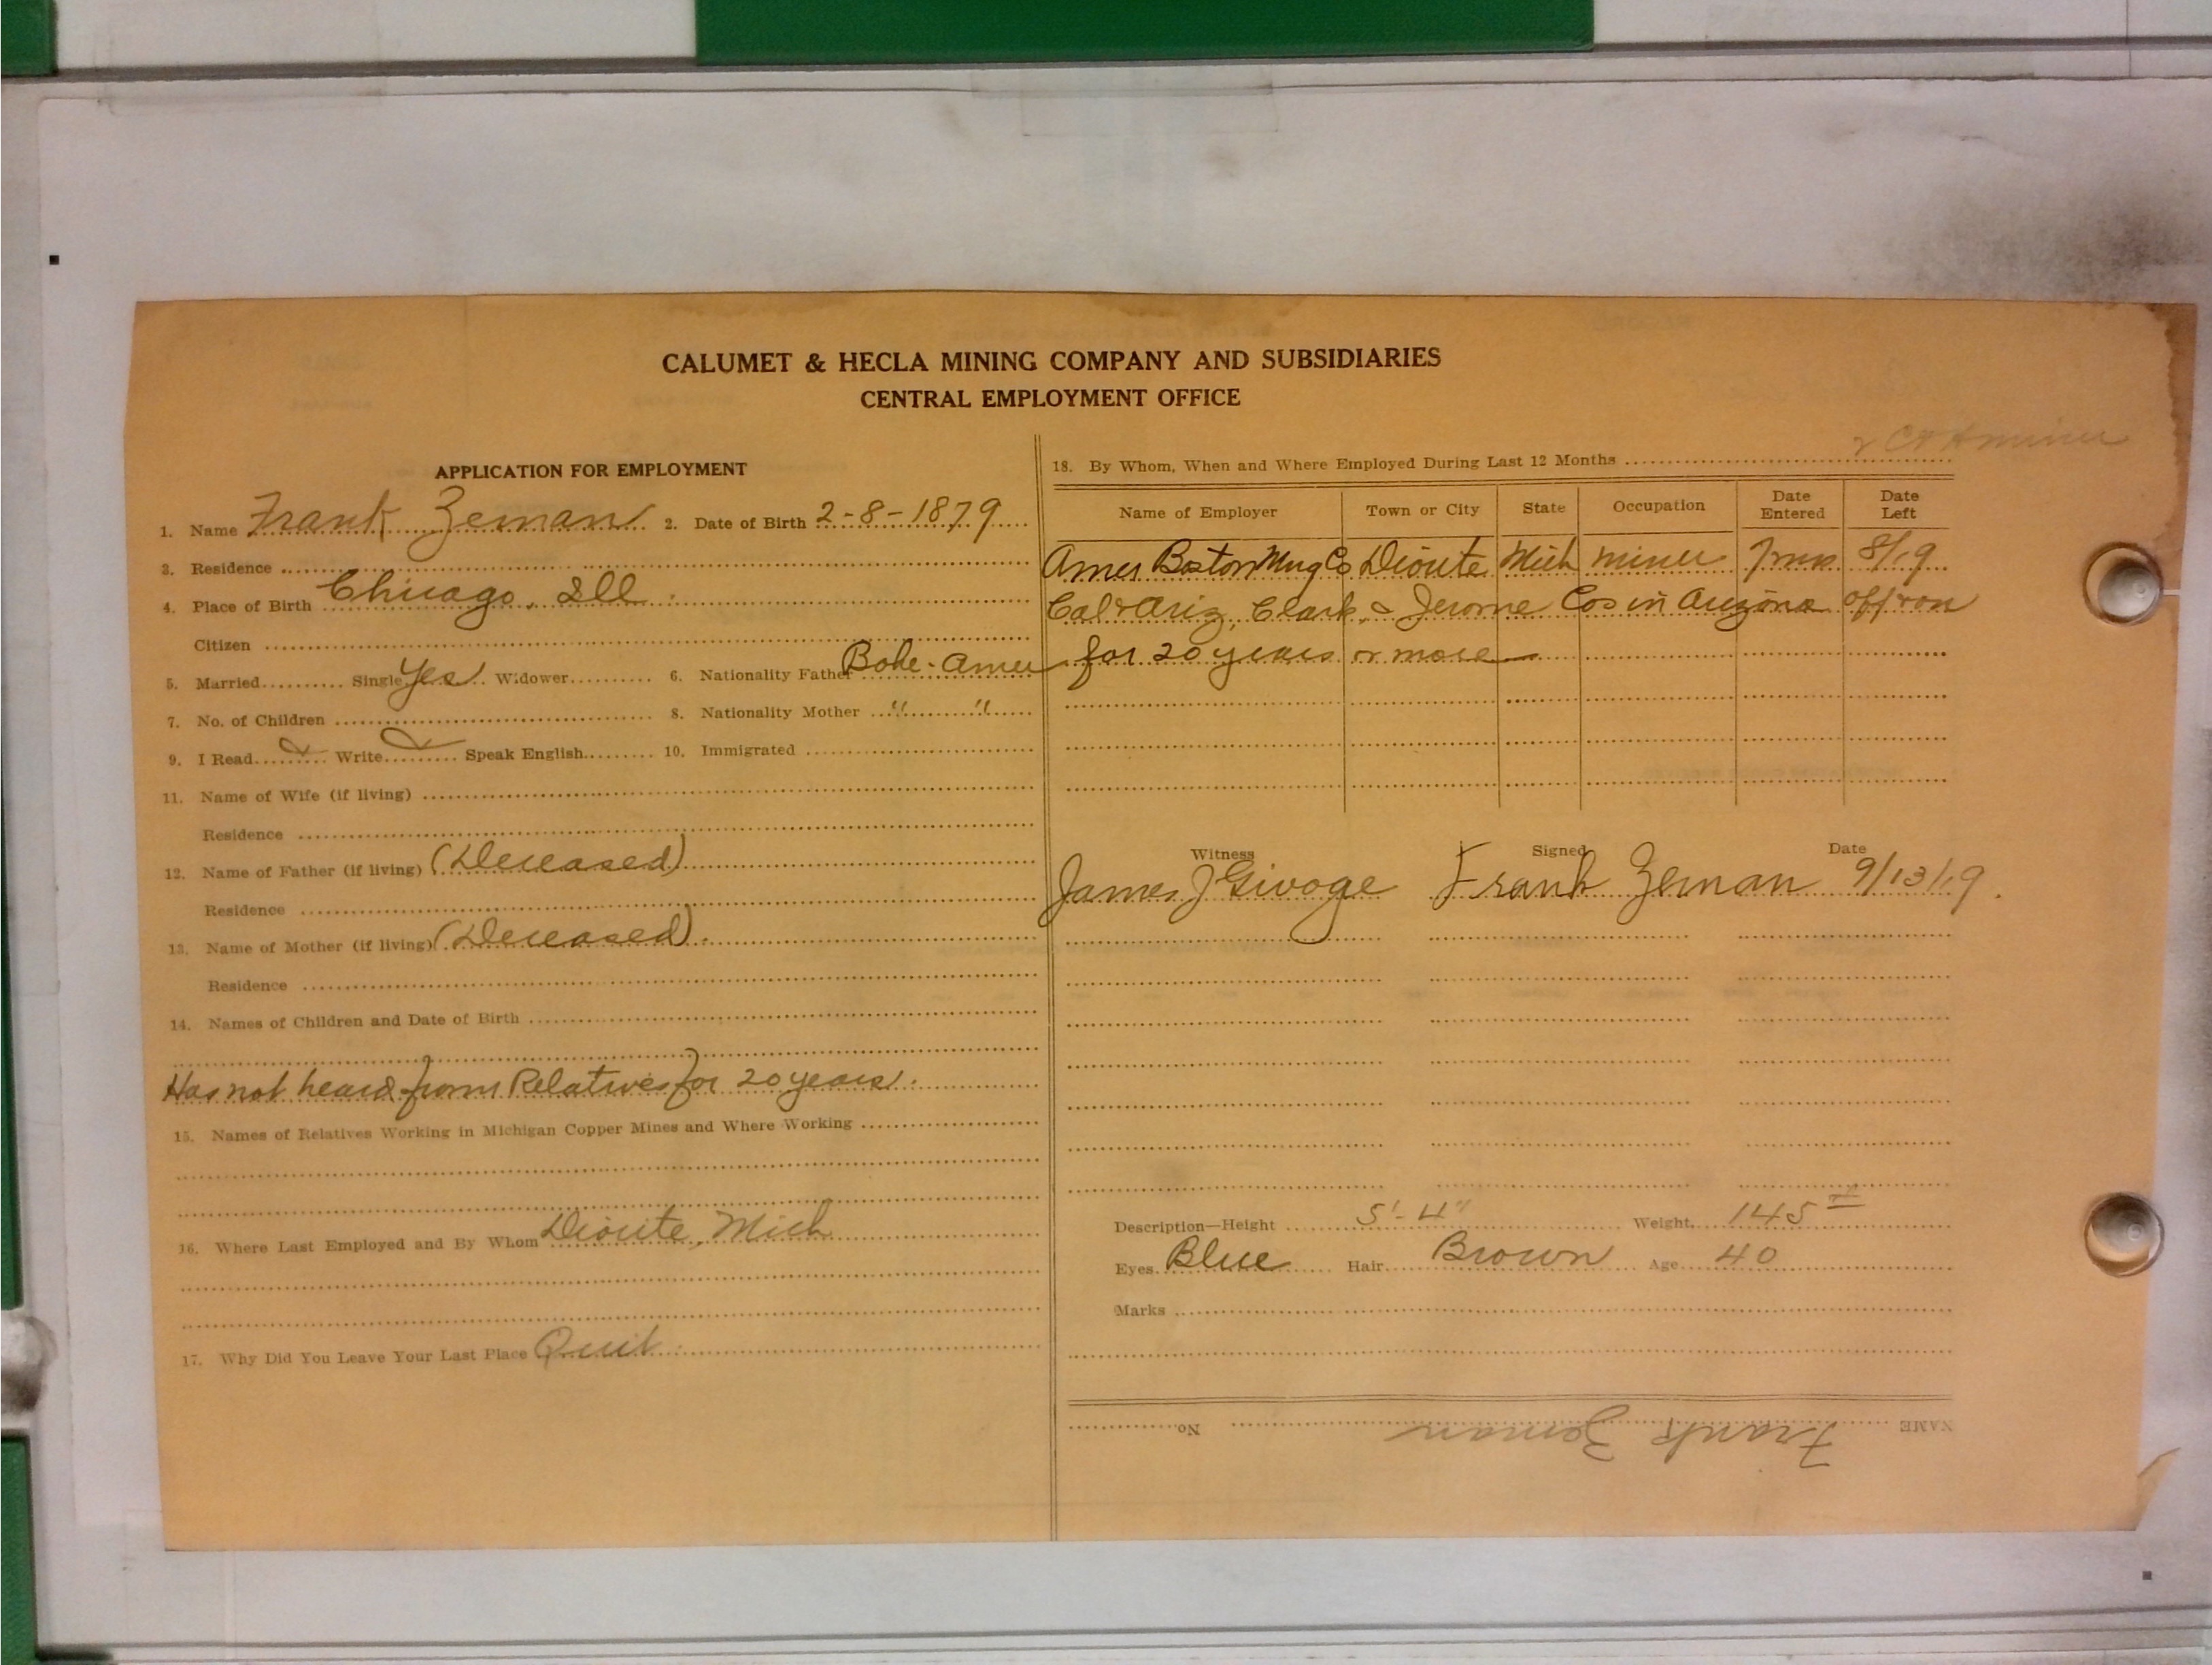 CALUMET & HECLA MINING COMPANY AND SUBSIDIARIES
CENTRAL EMPLOYMENT OFFICE
APPLICATION FOR EMPLOYMENT
1. Name Frank Zeman 2. Date of Birth 2-8-1879
3. Residence
4. Place of Birth Chicago, Ill
Citizen
5. Married Single Yes Widower 6. Nationality Father Bohe-Amer
7. No. of Children 8. Nationality Mother " "
9. I Read ✓ Write ✓ Speak English 10. Immigrated
11. Name of Wife (if living)
Residence
12. Name of Father (if living) (Deceased)
Residence
13. Name of Mother (if living) (Deceased)
Residence
14. Names of Children and Date of Birth
Has not heard from Relatives for 20 years.
15. Names of Relatives Working in Michigan Copper Mines and Where Working
16. Where Last Employed and By Whom Diorite, Mich
17. Why Did You Leave Your Last Place Quit
18. By Whom, When and Where Employed During Last 12 Months
Name of Employer Town or City State Occupation Date Entered Date Left
Amer Boston Mng Co Diorite Mich miner 7 mos 8/19
Cal & Ariz, Clark & Jerome Cos in Arizona off & on
for 20 years or more
Witness Signed Date
James J Frank Zeman 9/13/19.
Description—Height 5'-4" Weight 145
Eyes Blue Hair Brown Age 40
Marks
NAME Frank Zeman No.